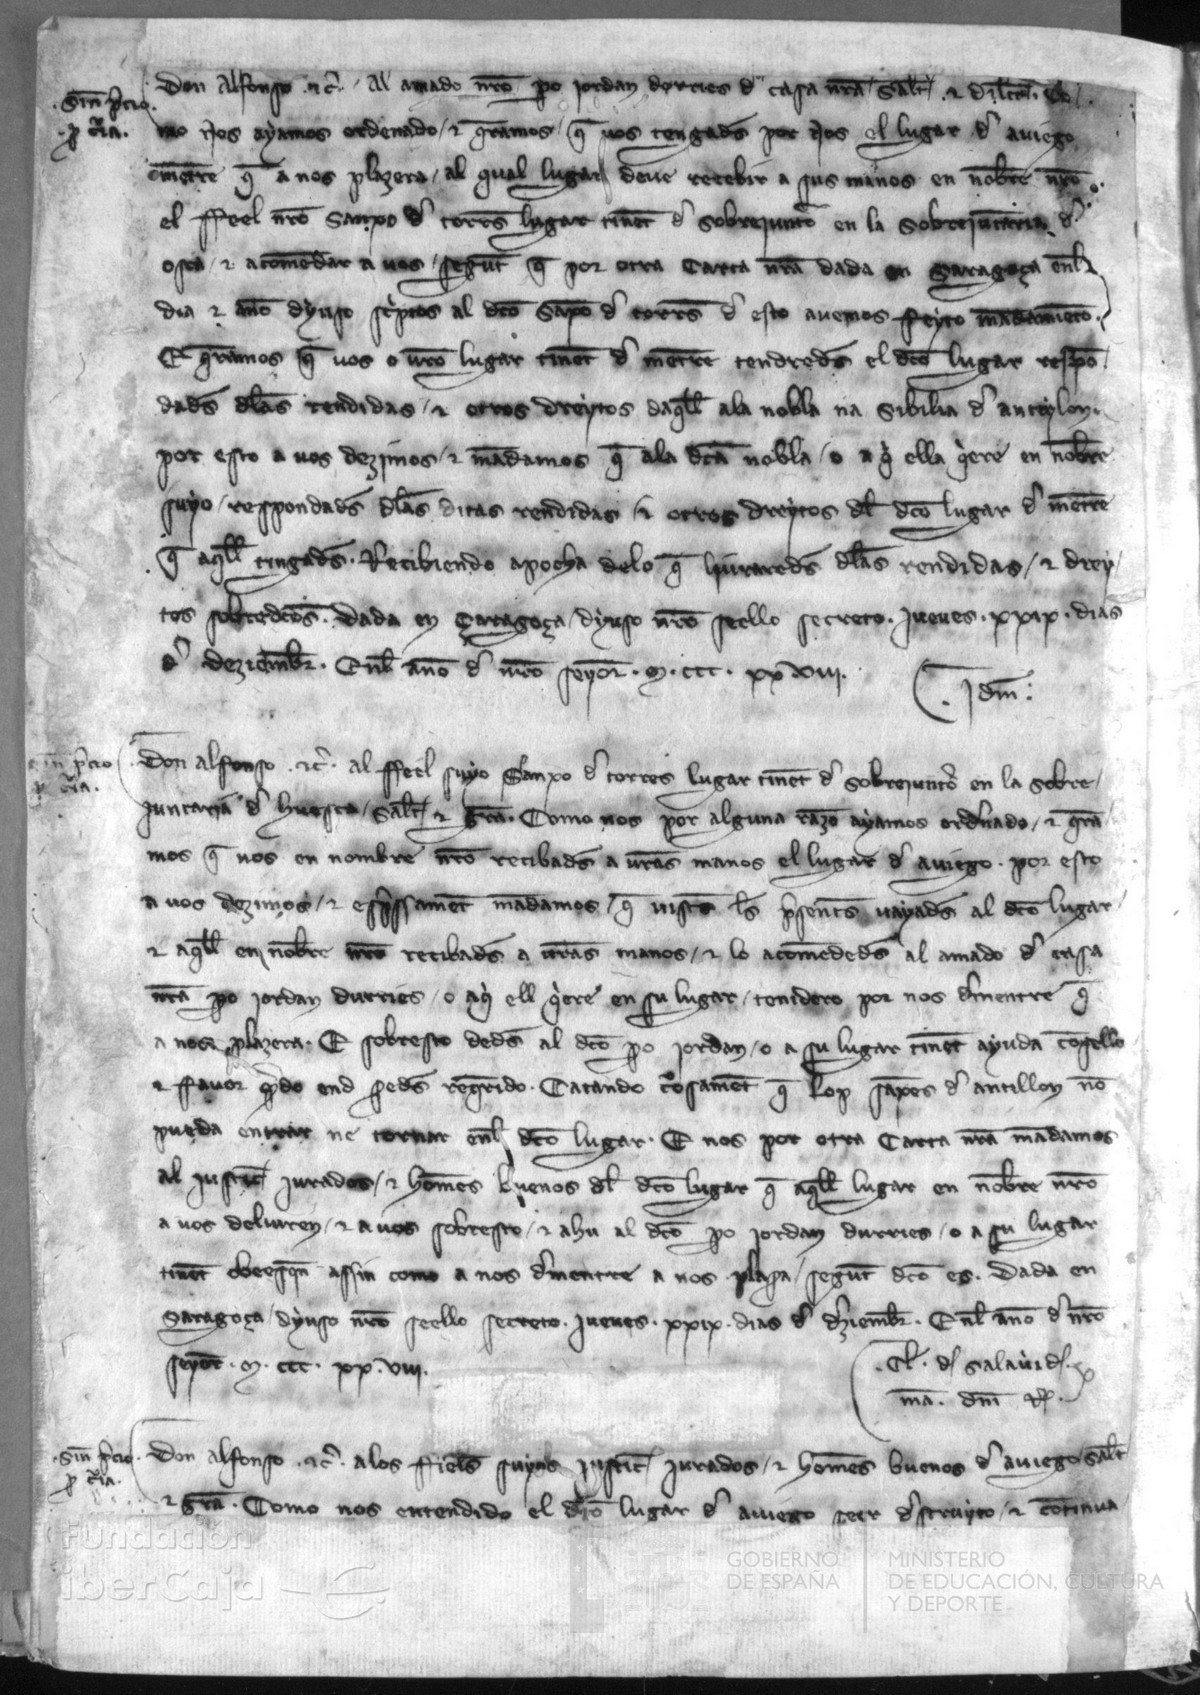 Sin p̄cio
p c̄ia.
Don Alfonso ⁊c̄. Al amado nr̄o po jordan dorries d' casa nr̄a salt̄ ⁊ dilec̄. Co
mo Nos ayamos ordenado ⁊ q̄ramos q̄ vos tengades por Nos el lugar d' aviego
mētre q̄ a nos plazera al qual lugar deue recebir a sus manos en nōbre nr̄o
el ffeel nr̄o Sanxo d' torres lugar tinēt d' sobrejuntero en la Sobrejūtaria d'
osca ⁊ acomēdar a uos segūt q̄ por otra Carta nr̄a dada en Saragoça enl
dia ⁊ anō dyuso sc̄ptos al dc̄o Sāxo d' torres d' esto auemos feyto mādamiēto.
E q̄ramos q̄ vos o vr̄o lugar tinēt d' mētre tendredes el dc̄o lugar respō
dades dlas rendidas ⁊ otros dreytos daq̄ll ala nobla na Sibilia d' anteylon.
por esto a uos dezimos ⁊ mādamos q̄ ala dc̄a nobla o a q̄ ella q̄rre en nōbre
suyo respondades dlas ditas rendidas ⁊ otros dreytos dl dc̄o lugar d' mētre
q̄ aq̄ll tingades. Recibiendo apocha delo q̄ liuraredes dlas rendidas ⁊ drey
tos sobredc̄os. Dada en Çaragoça dyuso nr̄o seello secreto. jueues. xxix. dias
d' deziembr̄. Enl anō d' nr̄o seyor. M. ccc. xx viii.
Idm̄.
Sin p̄cio
p c̄ia.
Don alfonso ⁊c̄. al ffeel suyo Sanxo d' torres lugar tinēt d' sobrejunto en la sobre
juntaria d' huesca salt̄ ⁊ gr̄a. Como nos por alguna razō ayamos ordnado ⁊ q̄ra
mos q̄ uos en nombre nr̄o recibades a vr̄as manos el lugar d' aviego. por esto
a uos dezimos ⁊ exp̄ssamēt mādamos q̄ vistas las p̄sentes vayades al dc̄o lugar
⁊ aq̄ll en nōbre nr̄o recibades a vr̄as manos ⁊ lo acomēdedes al amado d' casa
nr̄a po jordan durries o a q̄ ell q̄rre en su lugar tenidero por nos dmentre q̄
a nos plazera. E sobresto dedes al dc̄o po jordan o a su lugar tinēt ayuda cōsello
⁊ fauor q̄ndo end seredes req̄rido. Catando cosamēt q̄ Lop sanxes d' antillon nō
pueda entrar ne tornar enl dc̄o lugar. E nos por otra Carta nr̄a mādamos
al justic̄ jurados ⁊ hōmes buenos dl dc̄o lugar q̄ aq̄ll lugar en nōbre nr̄o
a uos deliuren ⁊ a uos sobresto ⁊ ahu al dc̄o po jordan durries o a su lugar
tinēt obeesq̄n assin como a nos dmentre a nos plaza segūt dc̄o es. Dada en
Saragoça dyuso nr̄o seello secreto. jueues. xxix. dias d' dziembr̄. Enl anō d' nr̄o
seyor. M. ccc. xx. viii.
Cl. d' salavd'
mā. dm̄ R̄.
Sin p̄cio
p c̄ia.
Don alfonso ⁊c̄. alos fieles suyos justic̄ jurados ⁊ hōmes buenos d' aviego salt̄
⁊ gr̄a. Como nos entendido el dc̄o lugar d' aviego seer dstruyto ⁊ cōtinua
Fundación
iberCaja
GOBIERNO
DE ESPAÑA
MINISTERIO
DE EDUCACIÓN, CULTURA
Y DEPORTE